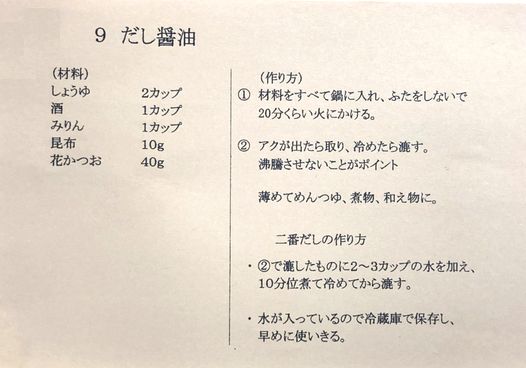 9 だし醤油
(材料)
しょうゆ 2カップ
酒 1カップ
みりん 1カップ
昆布 10g
花かつお 40g
(作り方)
① 材料をすべて鍋に入れ、ふたをしないで
20分くらい火にかける。
② アクが出たら取り、冷めたら漉す。
沸騰させないことがポイント
薄めてめんつゆ、煮物、和え物に。
二番だしの作り方
・ ②で漉したものに2~3カップの水を加え、
10分位煮て冷めてから漉す。
・ 水が入っているので冷蔵庫で保存し、
早めに使いきる。